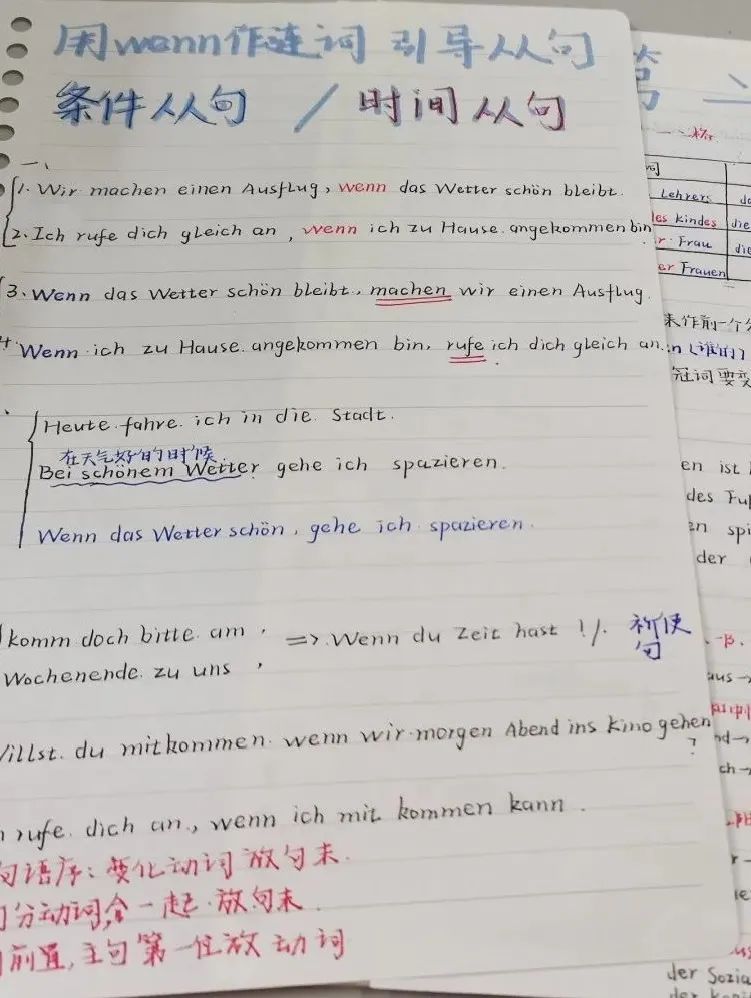 用wenn作连词 引导从句
条件从句 / 时间从句
一、
1. Wir machen einen Ausflug, wenn das Wetter schön bleibt.
2. Ich rufe dich gleich an, wenn ich zu Hause angekommen bin
3. Wenn das Wetter schön bleibt, machen wir einen Ausflug.
4. Wenn ich zu Hause angekommen bin, rufe ich dich gleich an.
Heute fahre ich in die Stadt.
在天气好的时候
Bei schönem Wetter gehe ich spazieren.
Wenn das Wetter schön, gehe ich spazieren.
komm doch bitte am , => Wenn du Zeit hast ! /. 祈使
Wochenende zu uns , 句
Willst du mitkommen wenn wir morgen Abend ins Kino gehen
?
rufe dich an, wenn ich mit kommen kann.
句语序: 变化动词放句末.
分动词,合一起放句末.
前置, 主句第一位放动词
第二
Lehrers
des Kindes die
r Frau die
er Frauen
来作前一个
n (谁的)
冠词要变
en ist
des Fu
en spi
der
aus →
nd→
ch→
der Sozia